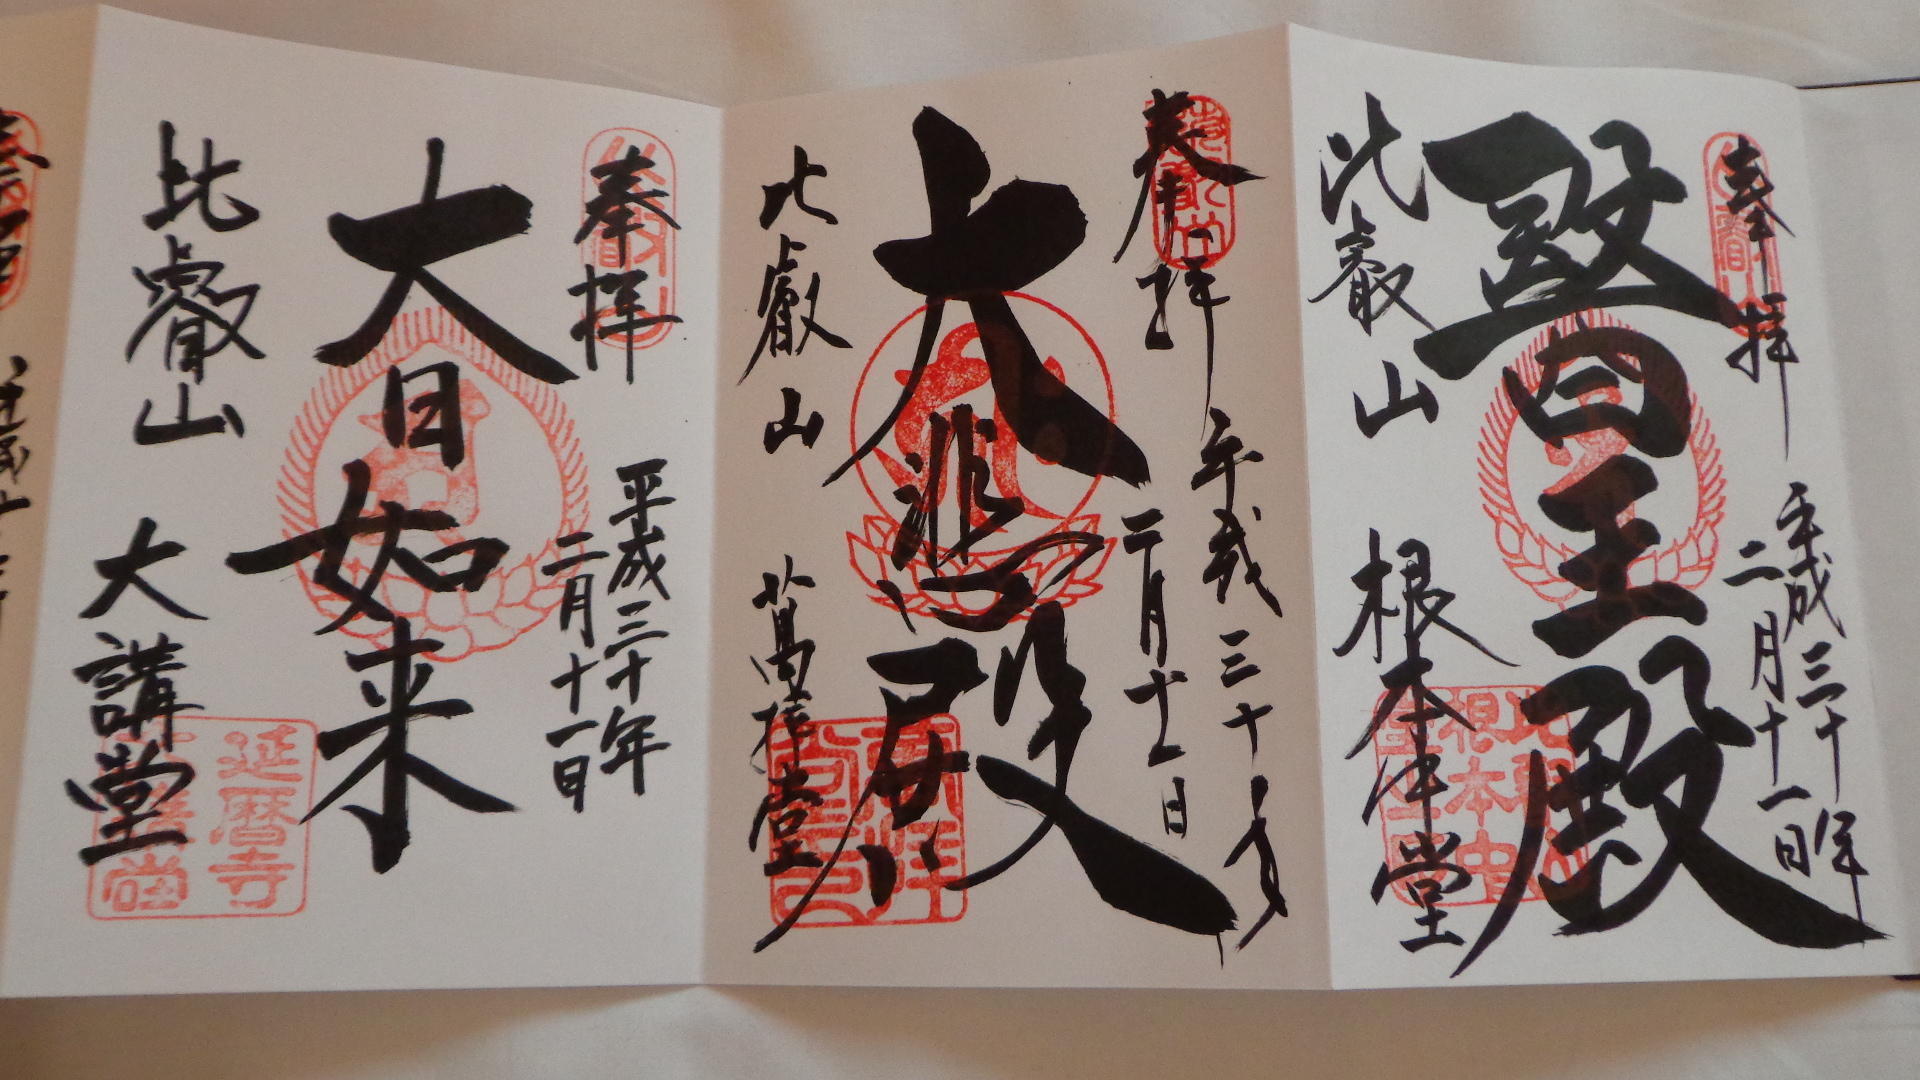 奉拝
平成三十年
二月十一日
醫王殿
比叡山
根本中堂
奉拝
平成三十年
二月十一日
大悲殿
比叡山
萬拝堂
奉拝
平成三十年
二月十一日
大日如来
比叡山
大講堂
延暦寺